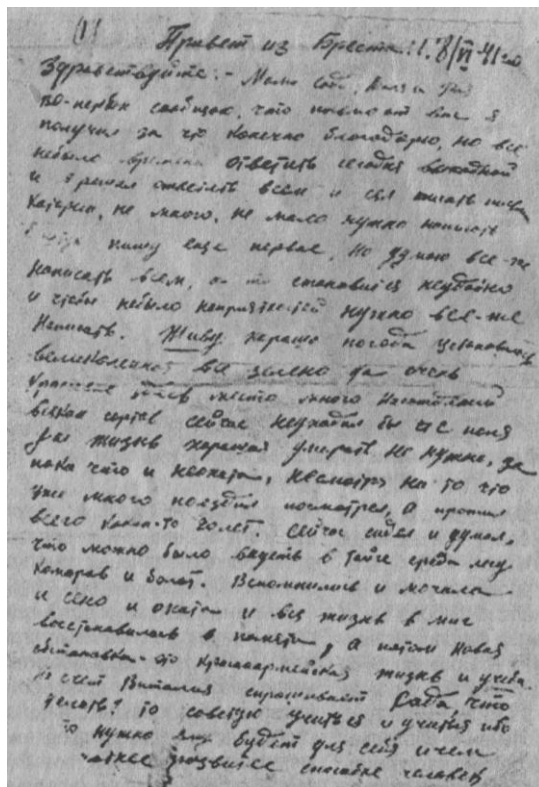 (1)
Привет из Бреста!!! 8/VI-41го
Здравствуйте:- Мама
во-первых сообщаю, что письмо от Вас я
получил за что конечно благодарю, но все
небыло времени ответить сегодня выходной
и я решил ответить всем и сел писать письма
которых, не много, не мало нужно написать
пишу еще первое, но думаю все-же
написать всем, а то становится неудобно
и чтобы небыло неприятностей нужно все-же
написать. Живу хорошо погода установилась
великолепная все зелено да очень
место много насаждений
сортов сейчас неуходил бы и с поля
жизнь хорошая умирать не нужно, да
пока что и неохота, несмотря на то что
уже много поездил посмотрел, а прошел
всего каких-то 20лет. Сейчас сидел и думал,
что можно было видеть в тайге среди лесу
комаров и болот. Вспомнились и мочила
и сено и охота и вся жизнь в миг
восстановилась в памяти, а потом новая
обстановка-это красноармейская жизнь и учеба.
Насчет Виталия спрашивает Сада, что
делать? То советую учиться и учиться ибо
то нужно будет для себя и чем
способнее человек